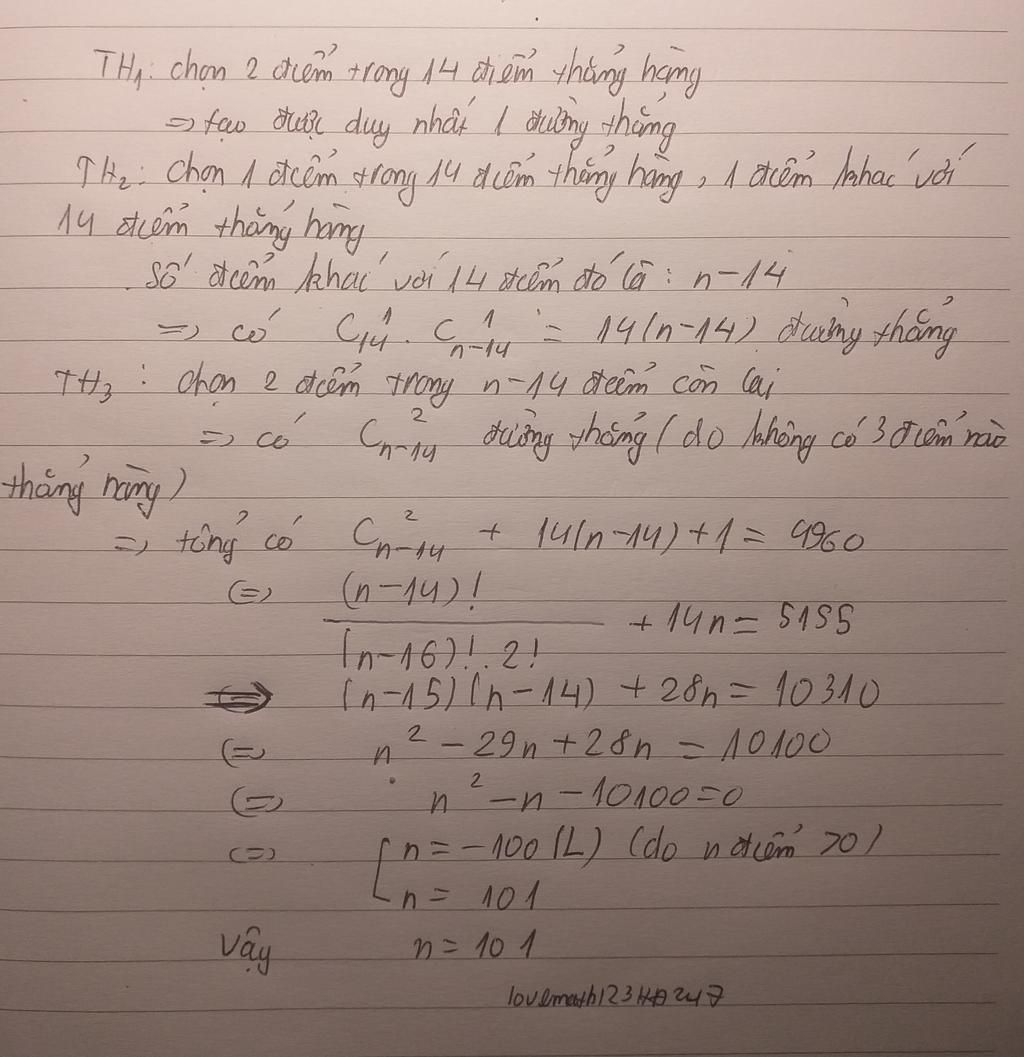 TH₁: chọn 2 điểm trong 14 điểm thẳng hàng
=> tạo được duy nhất 1 đường thẳng
TH₂: chọn 1 điểm trong 14 điểm thẳng hàng, 1 điểm khác với
14 điểm thẳng hàng
Số điểm khác với 14 điểm đó là: n-14
=> có C¹₁₄ . C¹ₙ₋₁₄ = 14(n-14) đường thẳng
TH₃: chọn 2 điểm trong n-14 điểm còn lại
=> có C²ₙ₋₁₄ đường thẳng (do không có 3 điểm nào
thẳng hàng)
=> tổng có C²ₙ₋₁₄ + 14(n-14) + 1 = 4960
(=) (n-14)! / (n-16)!.2! + 14n = 5155
(=> (n-15)(n-14) + 28n = 10310
(=> n² - 29n + 28n = 10100
(=> n² - n - 10100 = 0
(=> [ n = -100 (L) (do n điểm >0)
n = 101
Vậy n = 101